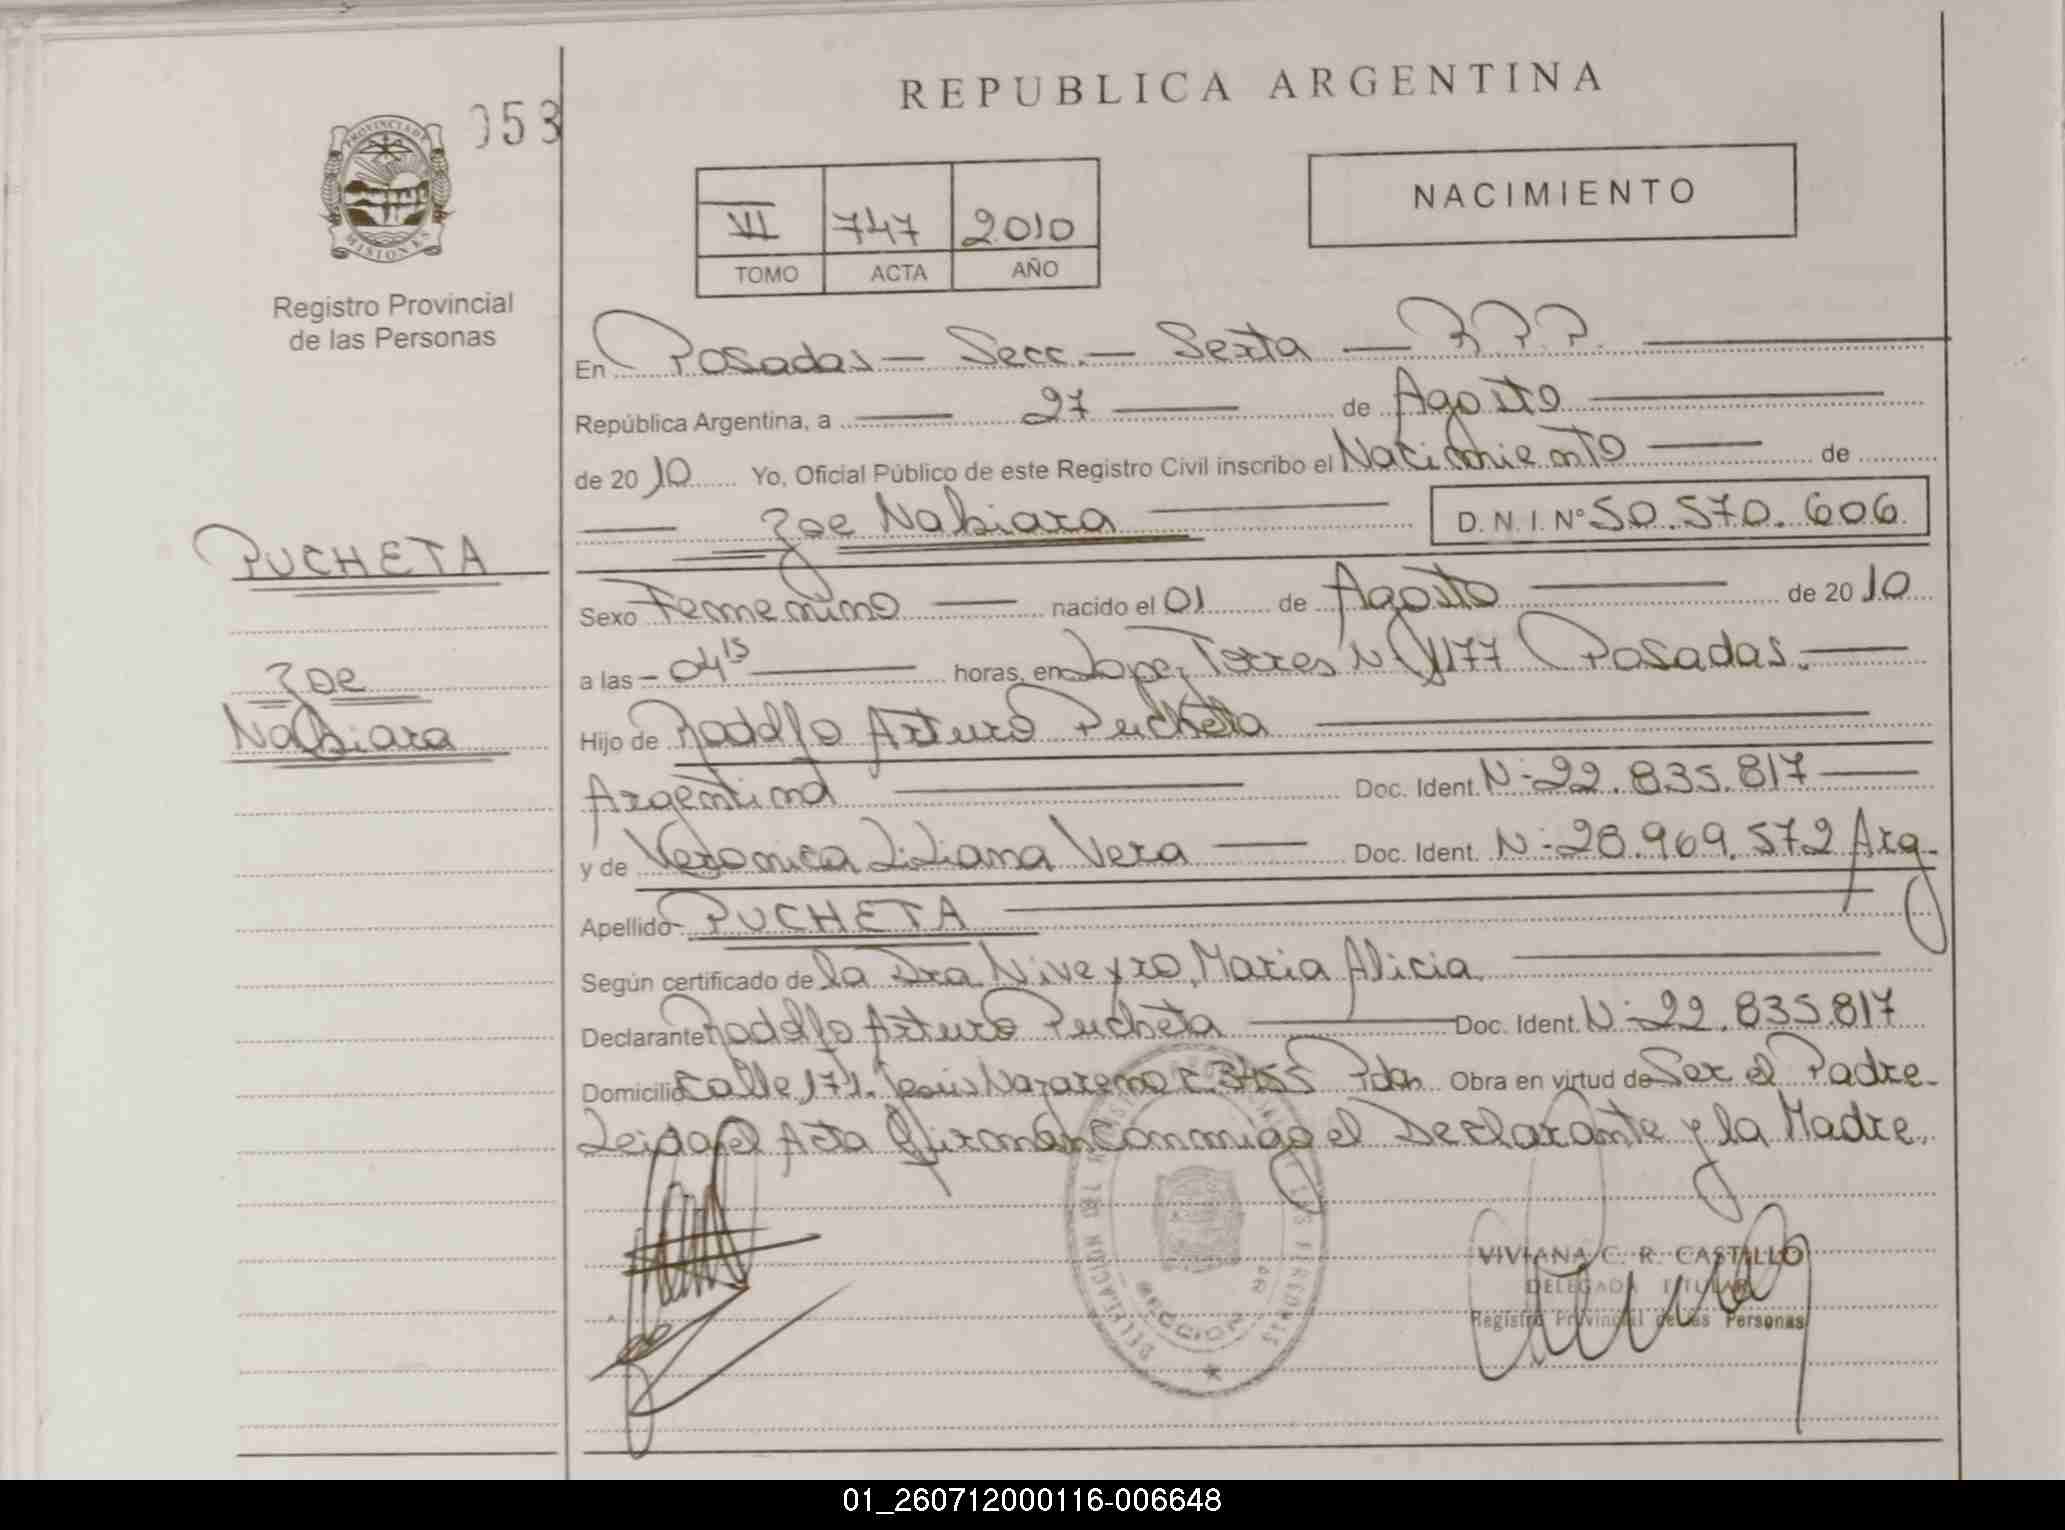 REPUBLICA ARGENTINA
053
PROVINCIA DE MISIONES
Registro Provincial
de las Personas
NACIMIENTO
VI 747 2010
TOMO ACTA AÑO
En Posadas - Secc. - Sexta - R.P.P.
República Argentina, a 27 de Agosto
de 2010 Yo, Oficial Público de este Registro Civil inscribo el Nacimiento de
Zoe Nabiara D.N.I. Nº 50.570.606
PUCHETA
Sexo Femenino nacido el 01 de Agosto de 2010
Zoe
a las 04 15 horas, en Lopez Torres N 1177 Posadas.
Nabiara
Hijo de Rodolfo Arturo Pucheta
Argentina Doc. Ident. N- 22.835.817
y de Veronica Liliana Vera Doc. Ident. N- 28.969.572 Arg
Apellido PUCHETA
Según certificado de la Dra Niveyro, Maria Alicia
Declarante Rodolfo Arturo Pucheta Doc. Ident. N- 22.835.817
Domicilio Calle 171. Jesús Nazareno c. 3455 Pdas Obra en virtud de Ser el Padre
Leida el Acta firman conmigo el Declarante y la Madre.
VIVIANA C. R. CASTILLO
DELEGADA TITULAR
Registro Provincial de las Personas
01_260712000116-006648